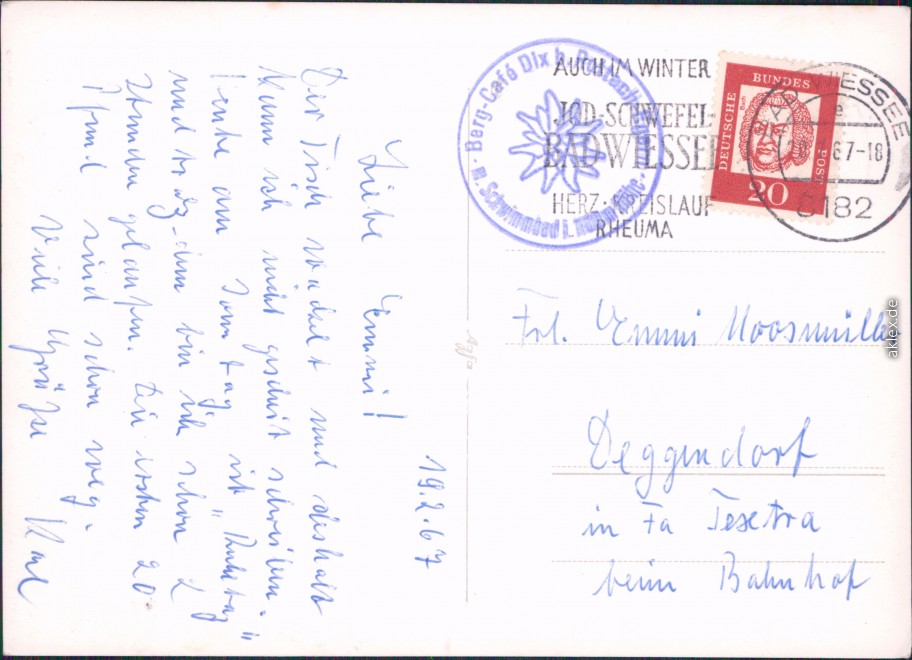 19.2.67
Liebe Emmi!
Der Tisch wackelt und deshalb
kann ich nicht gescheit schreiben.
heute am Sonntag, ist "Ruhetag"
und trotzdem bin ich schon 2
Stunden gelaufen. Die ersten 20
Pfund sind schon weg.
Viele Grüße Karl
Berg-Café Dix b.
m. Schwimmbad i.
AUCH IM WINTER
JOD-SCHWEFEL-
BAD WIESSEE
HERZ·KREISLAUF
RHEUMA
DEUTSCHE BUNDESPOST
20
BAD WIESSEE
67-18
8182
Frl. Emmi Moosmüller
Deggendorf
in Fa Tesetra
beim Bahnhof
Agfa
aklex.de